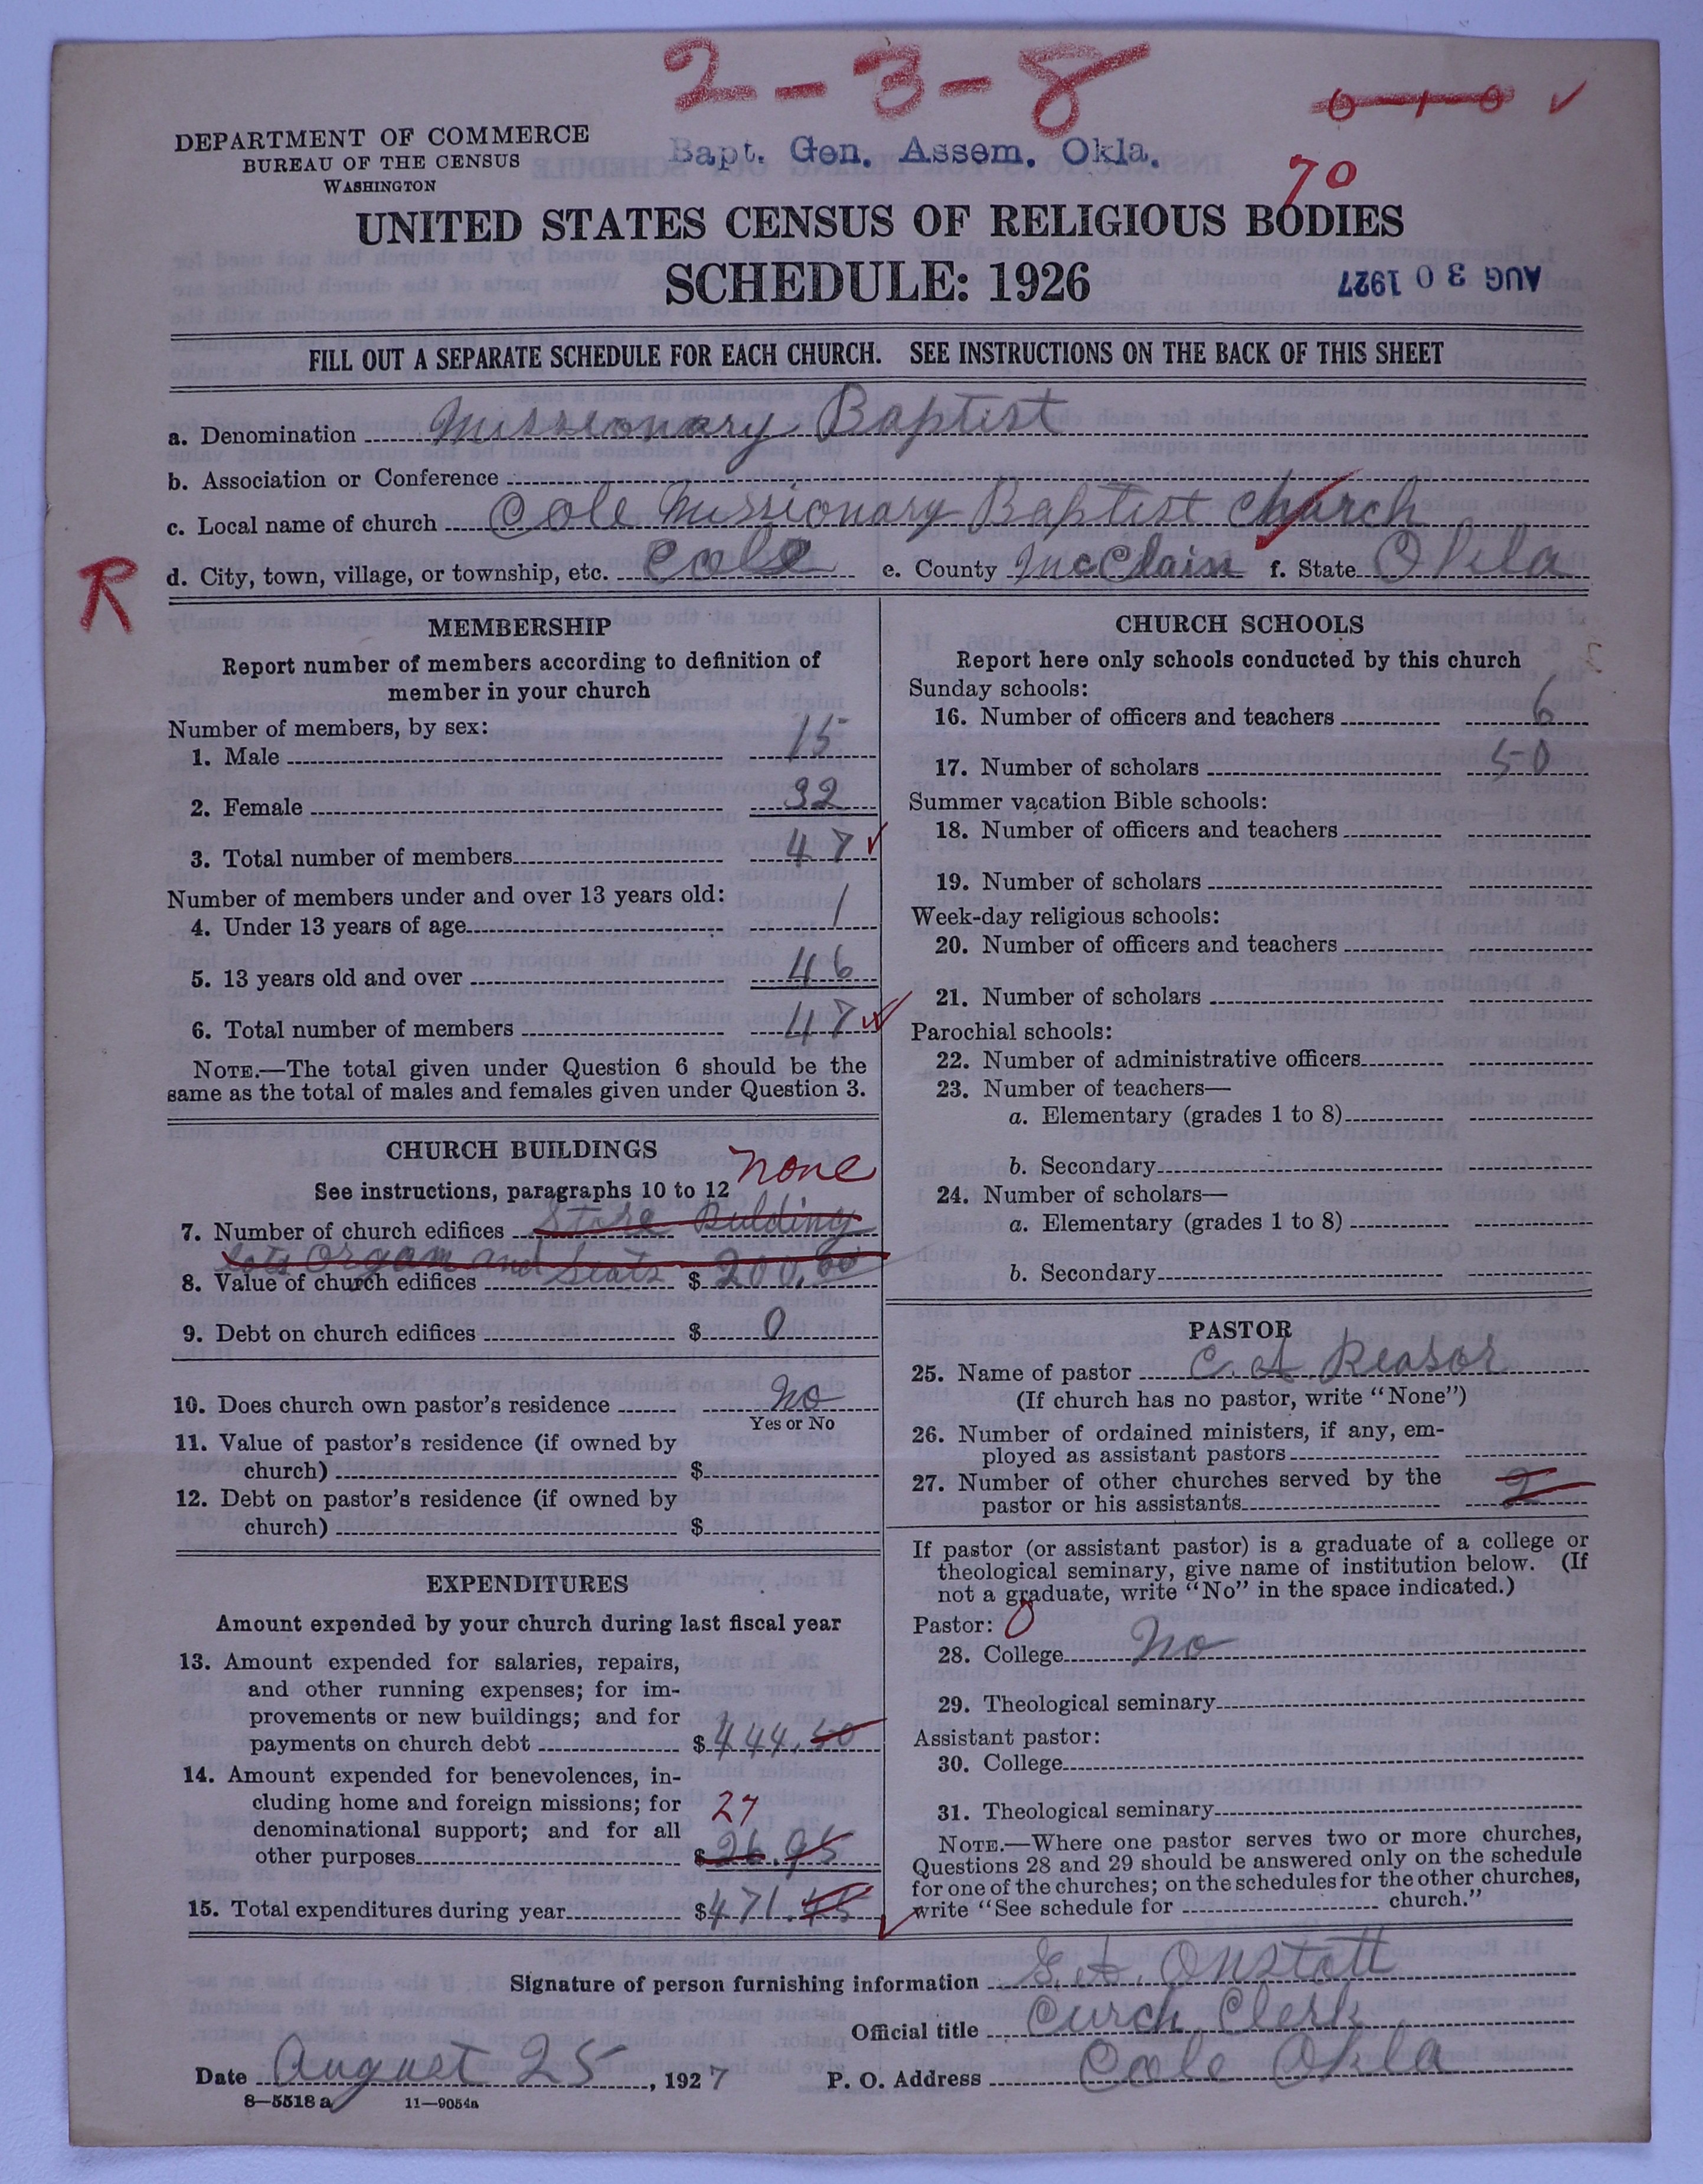 2-3-8
0-1-0 ✓
DEPARTMENT OF COMMERCE
BUREAU OF THE CENSUS
WASHINGTON
Bapt. Gen. Assem. Okla.
70
UNITED STATES CENSUS OF RELIGIOUS BODIES
SCHEDULE: 1926
AUG 30 1927
FILL OUT A SEPARATE SCHEDULE FOR EACH CHURCH. SEE INSTRUCTIONS ON THE BACK OF THIS SHEET
a. Denomination Missionary Baptist
b. Association or Conference
c. Local name of church Cole Missionary Baptist Church
R
d. City, town, village, or township, etc. Cole e. County McClain f. State Okla
MEMBERSHIP
Report number of members according to definition of
member in your church
Number of members, by sex:
1. Male 15
2. Female 32
3. Total number of members 47
Number of members under and over 13 years old:
4. Under 13 years of age 1
5. 13 years old and over 46
6. Total number of members 47
NOTE.—The total given under Question 6 should be the
same as the total of males and females given under Question 3.
CHURCH BUILDINGS
See instructions, paragraphs 10 to 12 none
7. Number of church edifices Store Bulding
lots Organ and Seats
8. Value of church edifices $ 200.00
9. Debt on church edifices $ 0
10. Does church own pastor's residence No
Yes or No
11. Value of pastor's residence (if owned by
church) $
12. Debt on pastor's residence (if owned by
church) $
EXPENDITURES
Amount expended by your church during last fiscal year
13. Amount expended for salaries, repairs,
and other running expenses; for im-
provements or new buildings; and for
payments on church debt $ 444.50
14. Amount expended for benevolences, in-
cluding home and foreign missions; for
denominational support; and for all
27
other purposes $ 26.95
15. Total expenditures during year $ 471.45
CHURCH SCHOOLS
Report here only schools conducted by this church
Sunday schools:
16. Number of officers and teachers 6
17. Number of scholars 50
Summer vacation Bible schools:
18. Number of officers and teachers
19. Number of scholars
Week-day religious schools:
20. Number of officers and teachers
21. Number of scholars
Parochial schools:
22. Number of administrative officers
23. Number of teachers—
a. Elementary (grades 1 to 8)
b. Secondary
24. Number of scholars—
a. Elementary (grades 1 to 8)
b. Secondary
PASTOR
25. Name of pastor C. A. Reasor
(If church has no pastor, write "None")
26. Number of ordained ministers, if any, em-
ployed as assistant pastors
27. Number of other churches served by the
pastor or his assistants 2
If pastor (or assistant pastor) is a graduate of a college or
theological seminary, give name of institution below. (If
not a graduate, write "No" in the space indicated.)
Pastor: 0
28. College No
29. Theological seminary
Assistant pastor:
30. College
31. Theological seminary
NOTE.—Where one pastor serves two or more churches,
Questions 28 and 29 should be answered only on the schedule
for one of the churches; on the schedules for the other churches,
write "See schedule for church."
Signature of person furnishing information G. A. Onstott
Official title Curch Clerk
Date August 25, 1927 P. O. Address Cole Okla
8—5518 a 11—9054a